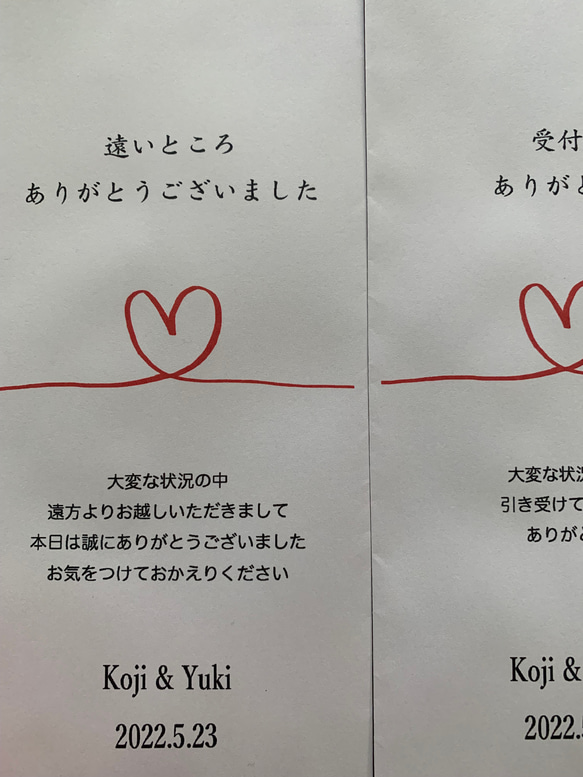 遠いところ
ありがとうございました
大変な状況の中
遠方よりお越しいただきまして
本日は誠にありがとうございました
お気をつけておかえりください
Koji & Yuki
2022.5.23
受付
ありが
大変な状
引き受けて
ありが
Koji &
2022.